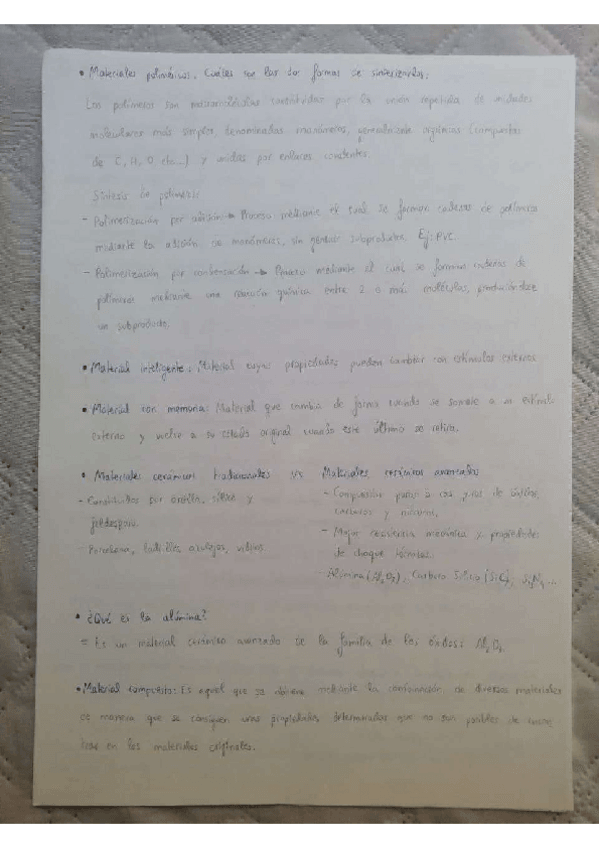 • Materiales poliméricos. Cuáles son las dos formas de sintetizarlos:
Los polímeros son macromoléculas constituidas por la unión repetida de unidades
moleculares más simples, denominadas monómeros, generalmente orgánicos (compuestos
de C, H, O, etc...) y unidas por enlaces covalentes.
Síntesis de polímeros:
- Polimerización por adición → Proceso mediante el cual se forman cadenas de polímeros
mediante la adición de monómeros, sin generar subproductos. Ej: PVC.
- Polimerización por condensación → Proceso mediante el cual se forman cadenas de
polímeros mediante una reacción química entre 2 o más moléculas, produciéndose
un subproducto.
• Material inteligente: Material cuyas propiedades pueden cambiar con estímulos externos
• Material con memoria: Material que cambia de forma cuando se somete a un estímulo
externo y vuelve a su estado original cuando este último se retira.
• Materiales cerámicos tradicionales vs Materiales cerámicos avanzados
- Constituidos por arcilla, sílice y
feldespato.
- Porcelana, ladrillos, azulejos, vidrios
- Compuestos puros o casi puros de óxidos,
carburos y nitruros.
- Mejor resistencia mecánica y propiedades
de choque térmico.
- Alúmina (Al2O3), Carburo Silicio (SiC), Si3N4...
• ¿Qué es la alúmina?
- Es un material cerámico avanzado de la familia de los óxidos: Al2O3
• Material compuesto: Es aquel que se obtiene mediante la combinación de diversos materiales
de manera que se consiguen unas propiedades determinadas que no son posibles de
en los materiales originales.